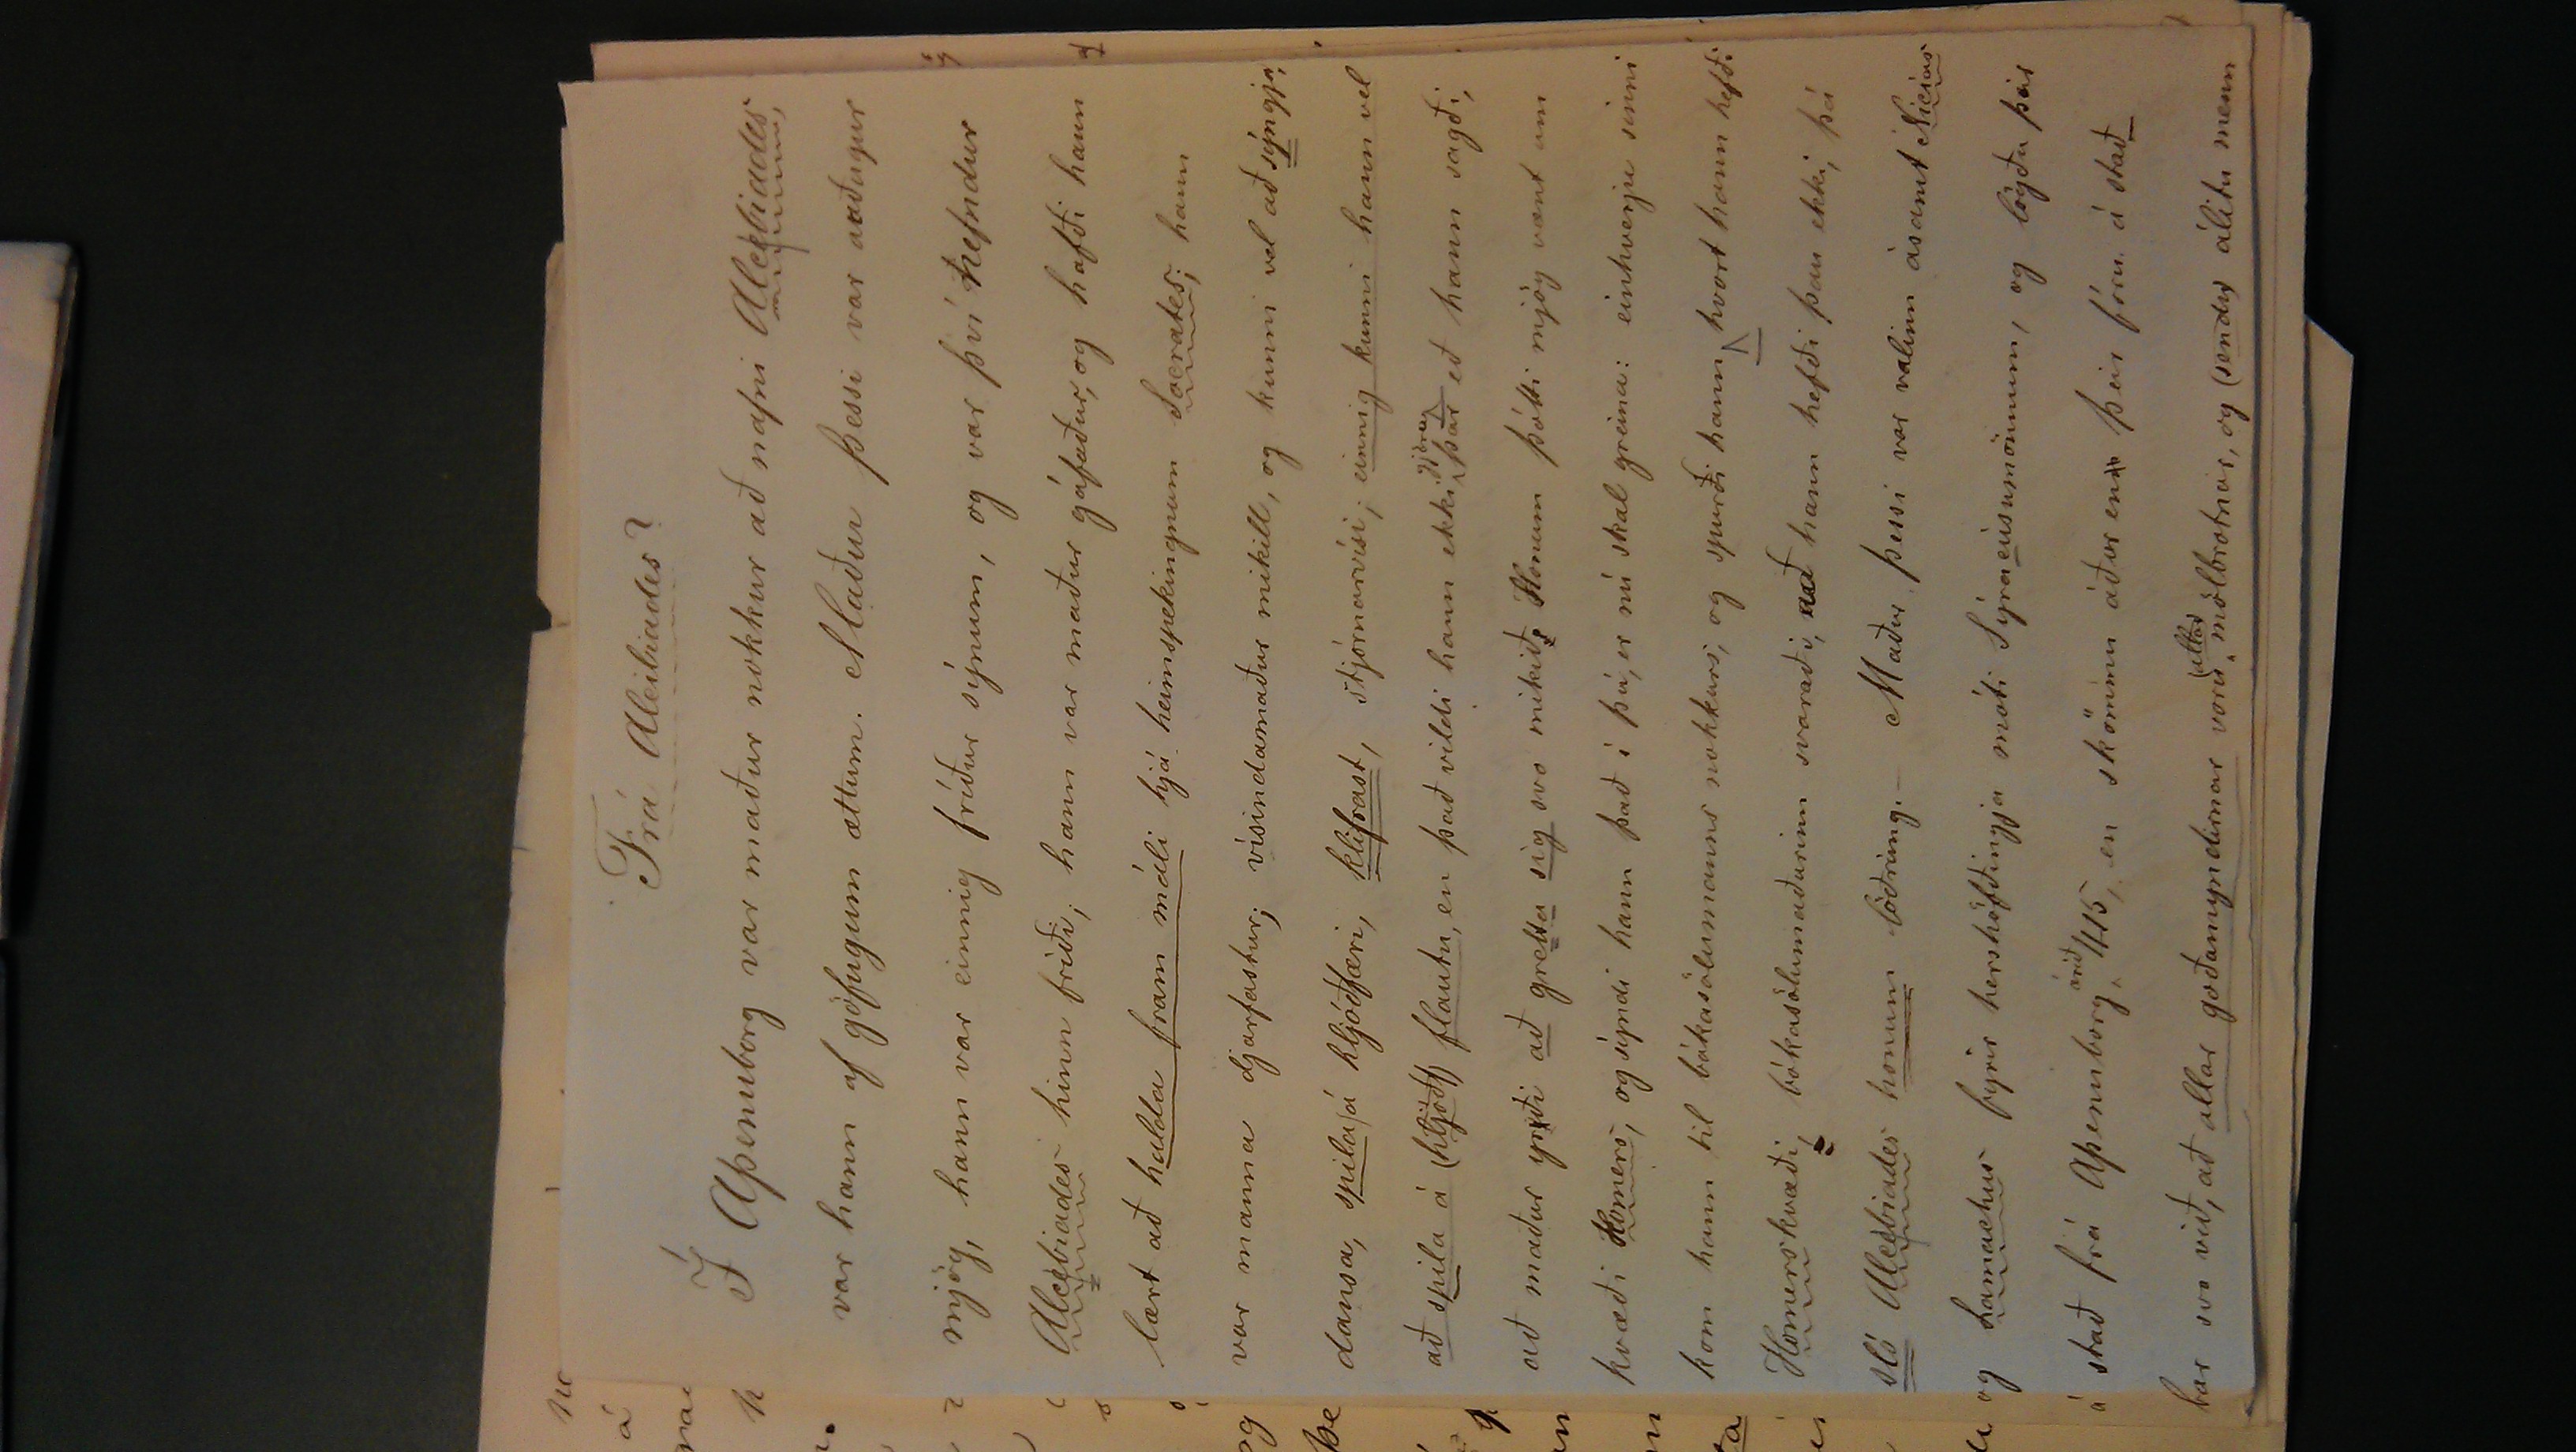 Frá Alcibiades?
Í Aþenuborg var maður nokkur að nafni Alcibiades,
var hann af göfugum ættum. Maður þessi var auðugur
mjög, hann var einnig fríður sýnum, og var því nefndur
Alcibiades hinn fríði; hann var maður gáfaður, og hafði hann
lært að halda fram máli hjá heimspekingnum Socrates; hann
var manna djarfastur; vísindamaður mikill, og kunni vel að sýngja,
dansa, spila á hljóðfæri, klifrast, stjórnarvísi; einnig kunni hann vel
að spila á (hljóðf) flautu, en það vildi hann ekki gjöra þar eð hann sagði,
að maður yrði að gretta sig svo mikið. Honum þótti mjög vænt um
kvæði Homers, og sýndi hann það í þú, er nú skal greina: einhverju sinni
kom hann til bókasölumanns nokkurs, og spurði hann, hvort hann hefði
Homerskvæði, bókasölumaðurinn svaraði, að hann hefði þau ekki, þá
sló Alcibiades honum löðrung. – Maður þessi var valinn ásamt Nicias
og Lamachus fyrir hershöfðingja móti Sýracusumönnum, og lögðu þeir
á stað frá Aþenuborg árið 415, en skömmu áður en þeir fóru á stað
bar svo við, að allar goðamyndirnar voru (allar mölbrotnar, og (sendu) álitu menn